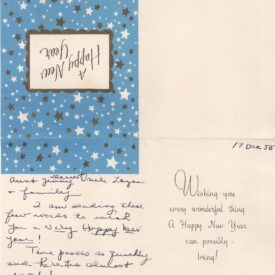 A
Happy New
Year
17 Dec 58
Wishing you
every wonderful thing
A Happy New Year
can possibly
bring!
Aunt Jenny Uncle
& family
I am sending these
few words to wish
you a Very Happy New
Year!
Time passes so quickly
and almost